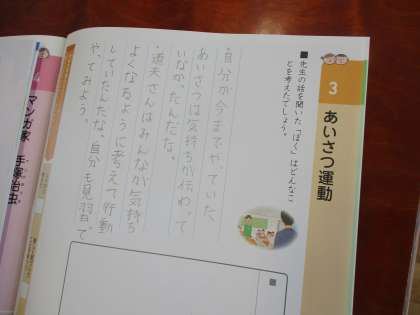 3 あいさつ運動
■先生の話を聞いた「ぼく」はどんなこ
とを考えたでしょう。
・自分が今までやっていた、
あいさつは気持ちが伝わって
いなかったんだな。
・道夫さんはみんなが気持ち
よくなるように考えて行動
していたんだな。自分も見習って
やってみよう。
■
4
マンガ家 手塚治虫